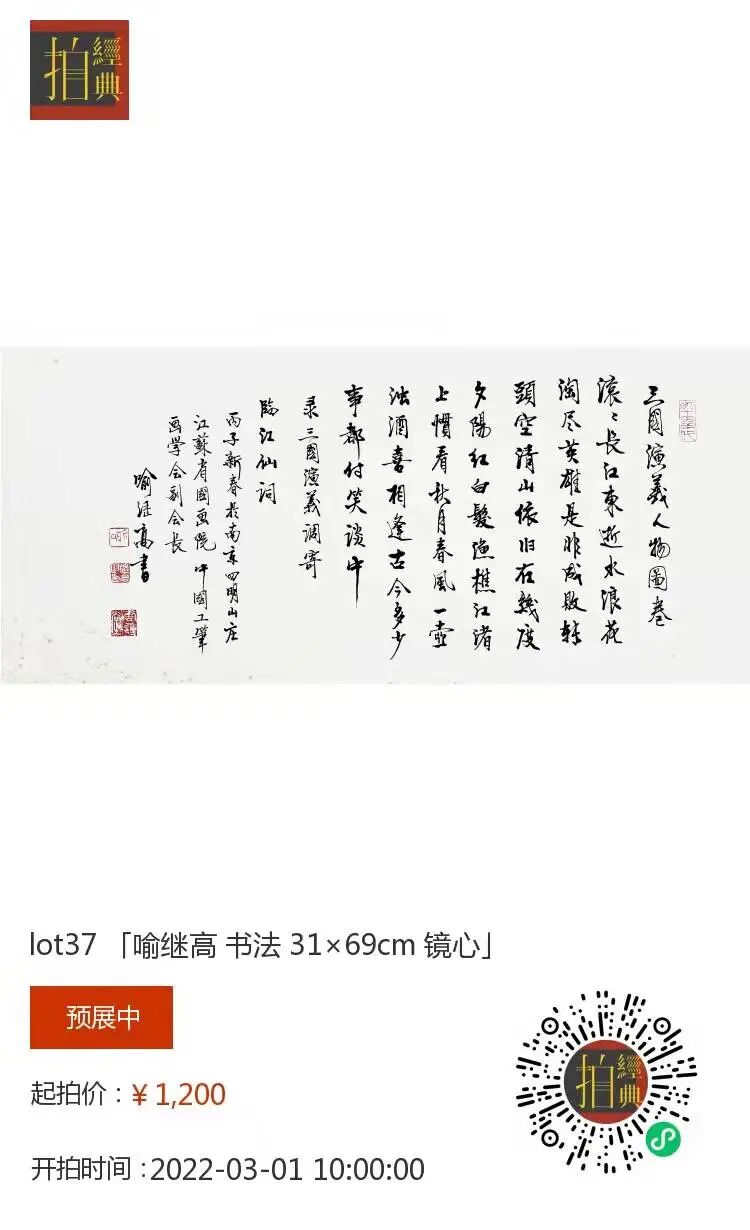 拍
經典
三國演義人物圖卷
滾々長江東逝水浪花
淘尽英雄是非成敗轉
頭空清山依旧在幾度
夕陽红白髮渔樵江渚
上慣看秋月春風一壺
浊酒喜相逢古今多少
事都付笑談中
录三國演義调寄
臨江仙词
丙子新春於南京四明山庄
江蘇省國画院中國工筆
画学会副会长
喻继高書
lot37 「喻继高 书法 31×69cm 镜心」
预展中
起拍价：¥1,200
开拍时间：2022-03-01 10:00:00
拍
經典